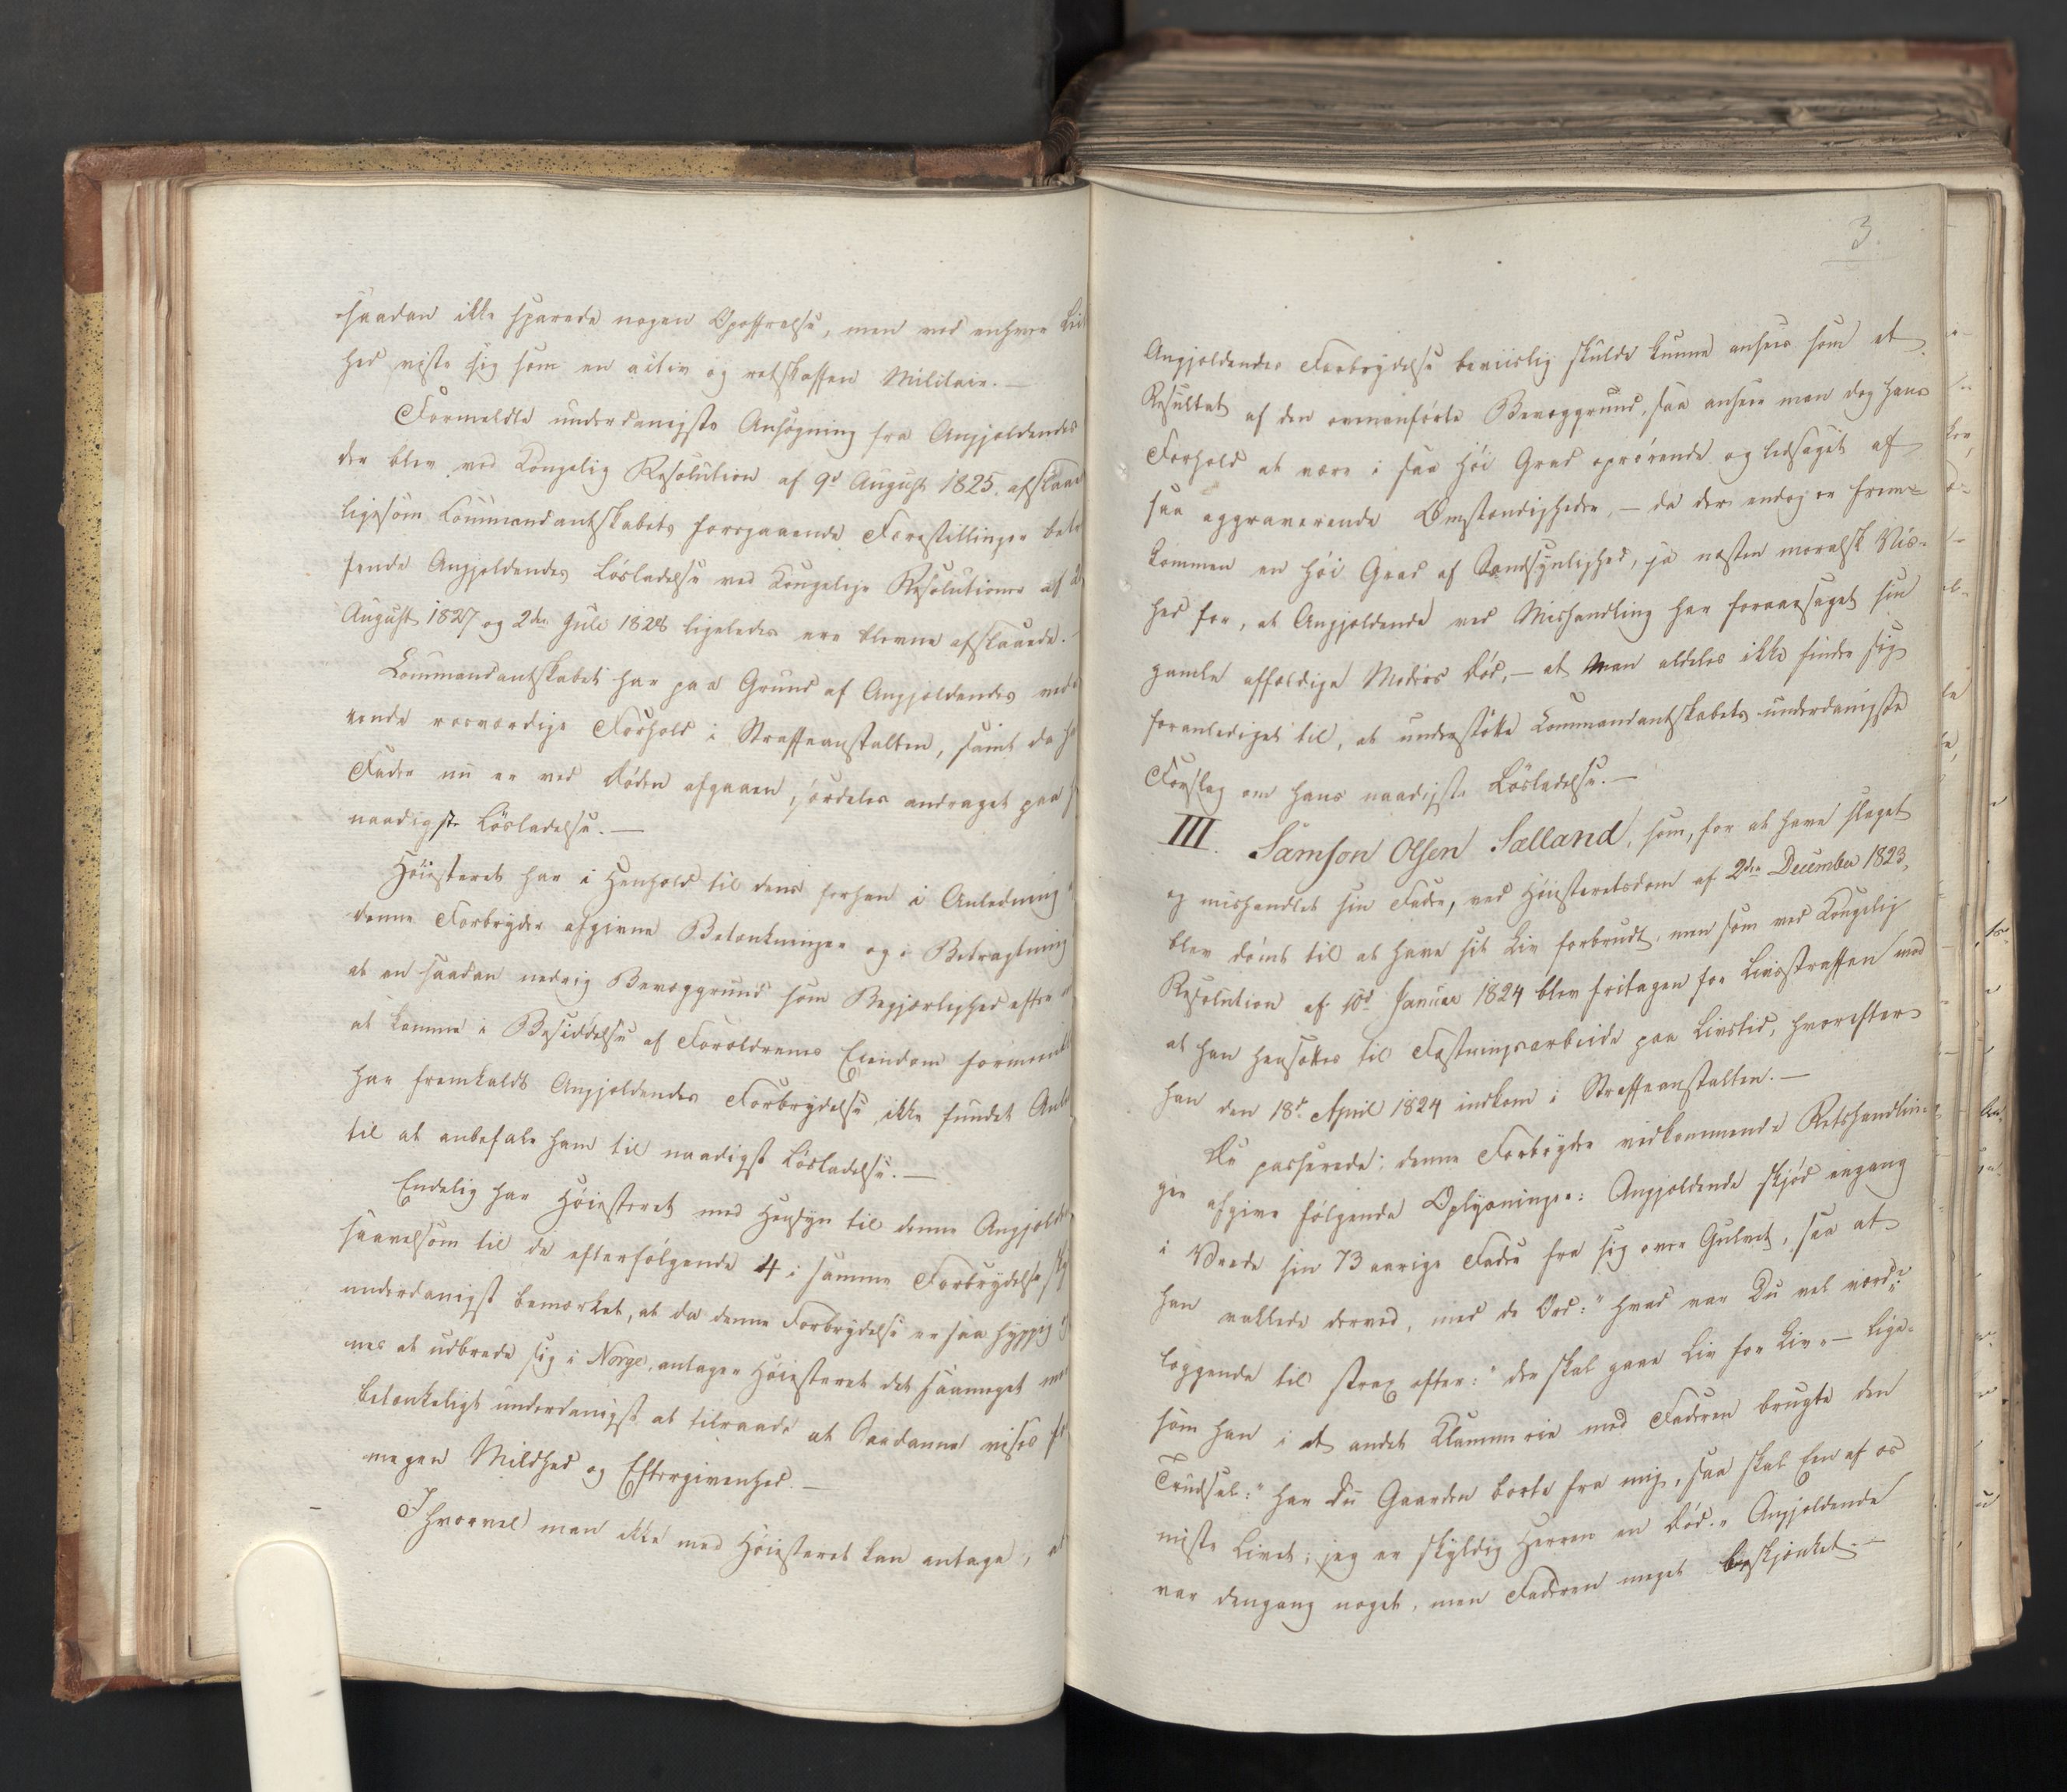 saadan ikke sparede nogen Opoffrelse, men ved enhver Lei
hed viste sig som en activ og retskaffen Militair. —
Formeldte underdanigste Ansøgning fra Angjeldendes
der blev ved Kongelig Resolution af 9d August 1825 afslaaet
ligesom Commandantskabets foregaaende Forestillinger betræf
fende Angjeldendes Løsladelse ved Kongelige Resolutioner af 2
August 1827 og 2den Juli 1828 ligeledes ere blevne afslaaede. —
Commandantskabet har paa Grund af Angjeldendes vedva
rende rosværdige Forhold i Straffeanstalten, samt da ha
Fader nu er ved Døden afgaaen, særdeles andraget paa h
naadigste Løsladelse. —
Høiesteret har i Henhold til dens forhen i Anledning
denne Forbryder afgivne Betænkninger og i Betragtning
at en saadan nedrig Bevæggrund som Begjærlighed efter
at komme i Besiddelse af Forældrenes Eiendom formeentl
har fremkaldt Angjeldendes Forbrydelse, ikke fundet Anle
til at anbefale ham til naadigst Løsladelse. —
Endelig har Høiesteret med Hensyn til denne Angjelde
saavelsom til de efterfølgende 4 i samme Forbrydelse sky
underdanigst bemærket, at da denne Forbrydelse er saa hyppig
nes at udbrede sig i Norge, antager Høiesteret det saameget me
betænkeligt underdanigst at tilraade at Saadanne vises fo
megen Mildhed og Eftergivenhed. —
Ihvorvel man ikke med Høiesteret kan antage, at
3.
Angjeldendes Forbrydelse beviislig skulde kunne ansees som et
Resultat af den ovenanførte Bevæggrund, saa anseer man dog hans
Forhold at være i saa høi Grad oprørende og ledsaget af
saa aggraverende Omstændigheder, — da der endog er frem-
kommen en høi Grad af Sandsynlighed, ja næsten moralsk Vis-
hed for, at Angjeldende ved Mishandling har foraarsaget sin
gamle affældige Moders Død, — at man aldeles ikke finder sig
foranlediget til, at understøtte Commandantskabets underdanigste
Forslag om hans naadigste Løsladelse. —
III. Samson Olsen Sælland, som, for at have slaget
og mishandlet sin Fader, ved Høiesteretsdom af 2den December 1823,
blev dømt til at have sit Liv forbrudt, men som ved Kongelig
Resolution af 10d Januar 1824 blev fritagen for Livsstraffen mod
at han hensættes til Fæstningsarbeide paa Livstid, hvorefter
han den 18d April 1824 indkom i Straffeanstalten. —
De passerede, denne Forbryder vedkommende Retshandlin-
ger afgive følgende Oplysninger: Angjeldende skjød engang
i Vrede sin 73 aarige Fader fra sig over Gulvet, saa at
han rallede derved, med de Ord: "hvad var Du vel værd?"
læggende til strax efter: "der skal gaae Liv for Liv" — lige-
som han i et andet Klammerie med Faderen brugte den
Trudsel: "har Du Gaarden borte fra mig, saa skal Een af os
miste Livet; jeg er skyldig Herren en Død." Angjeldende
var dengang noget, men Faderen meget beskjænket. —